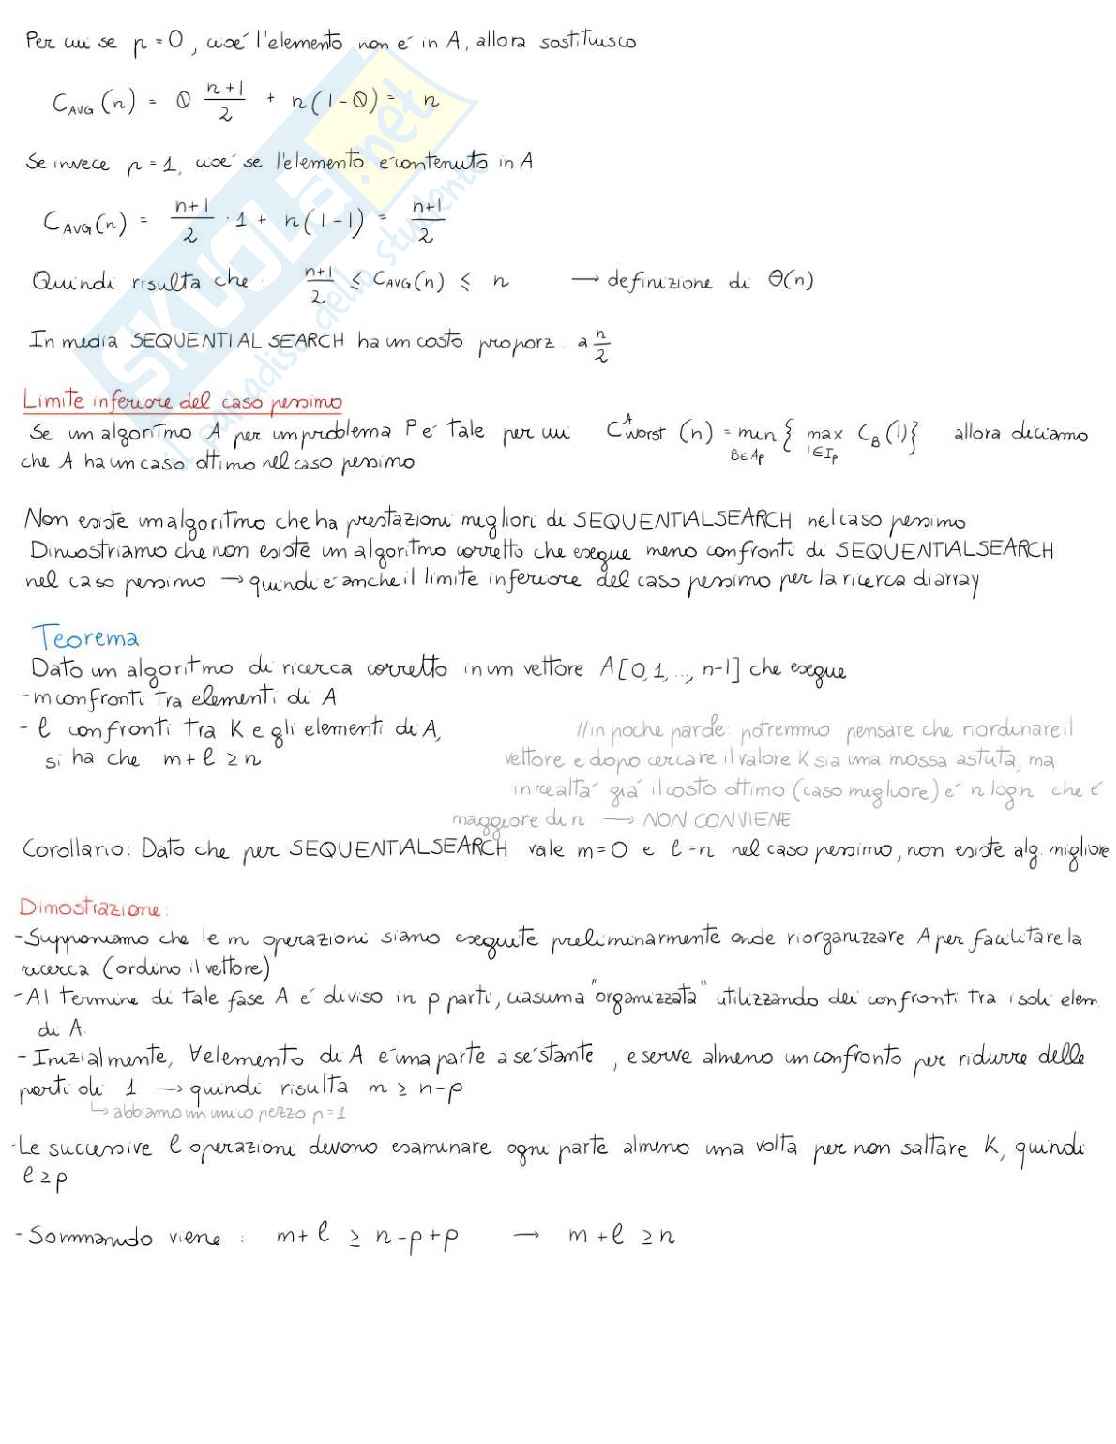 Per cui se p = 0, cioé l'elemento non é in A, allora sostituisco
C_AVG (n) = 0 n+1/2 + n(1-0) = n
Se invece p = 1, cioé se l'elemento é contenuto in A
C_AVG (n) = n+1/2 · 1 + n(1-1) = n+1/2
Quindi risulta che n+1/2 ≤ C_AVG (n) ≤ n → definizione di Θ(n)
In media SEQUENTIAL SEARCH ha un costo proporz. a n/2
Limite inferiore del caso pessimo
Se un algoritmo A per un problema P é tale per cui C^A_worst (n) = min_{B∈A_P} { max_{I∈I_P} C_B (I)} allora diciamo
che A ha un caso ottimo nel caso pessimo
Non esiste un algoritmo che ha prestazioni migliori di SEQUENTIALSEARCH nel caso pessimo
Dimostriamo che non esiste un algoritmo corretto che esegue meno confronti di SEQUENTIALSEARCH
nel caso pessimo → quindi é anche il limite inferiore del caso pessimo per la ricerca di array
Teorema
Dato un algoritmo di ricerca corretto in un vettore A[0,1,..., n-1] che esegue
- m confronti tra elementi di A
- l confronti tra K e gli elementi di A,
si ha che m + l ≥ n
//in poche parole: potremmo pensare che riordinare il
vettore e dopo cercare il valore K sia una mossa astuta, ma
in realtá giá il costo ottimo (caso migliore) é n logn che é
maggiore di n → NON CONVIENE
Corollario: Dato che per SEQUENTIALSEARCH vale m=0 e l=n nel caso pessimo, non esiste alg. migliore
Dimostrazione:
- Supponiamo che le m operazioni siano eseguite preliminarmente onde riorganizzare A per facilitare la
ricerca (ordino il vettore)
- Al termine di tale fase A é diviso in p parti, ciascuna "organizzata" utilizzando dei confronti tra i soli elem.
di A.
- Inizialmente, ∀ elemento di A é una parte a sé stante, e serve almeno un confronto per ridurre delle
parti di 1 → quindi risulta m ≥ n-p
↳ abbiamo un unico pezzo p=1
- Le successive l operazioni devono esaminare ogni parte almeno una volta per non saltare K, quindi
l ≥ p
- Sommando viene: m + l ≥ n - p + p → m + l ≥ n
SKUOLA.net
il paradiso dello studente